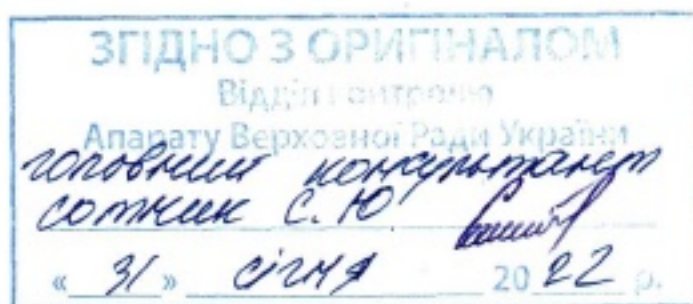 ЗГІДНО З ОРИГІНАЛОМ
Відділ контролю
Апарату Верховної Ради України
головний консультант
сотник С. Ю
« 31 » січня 2022 р.